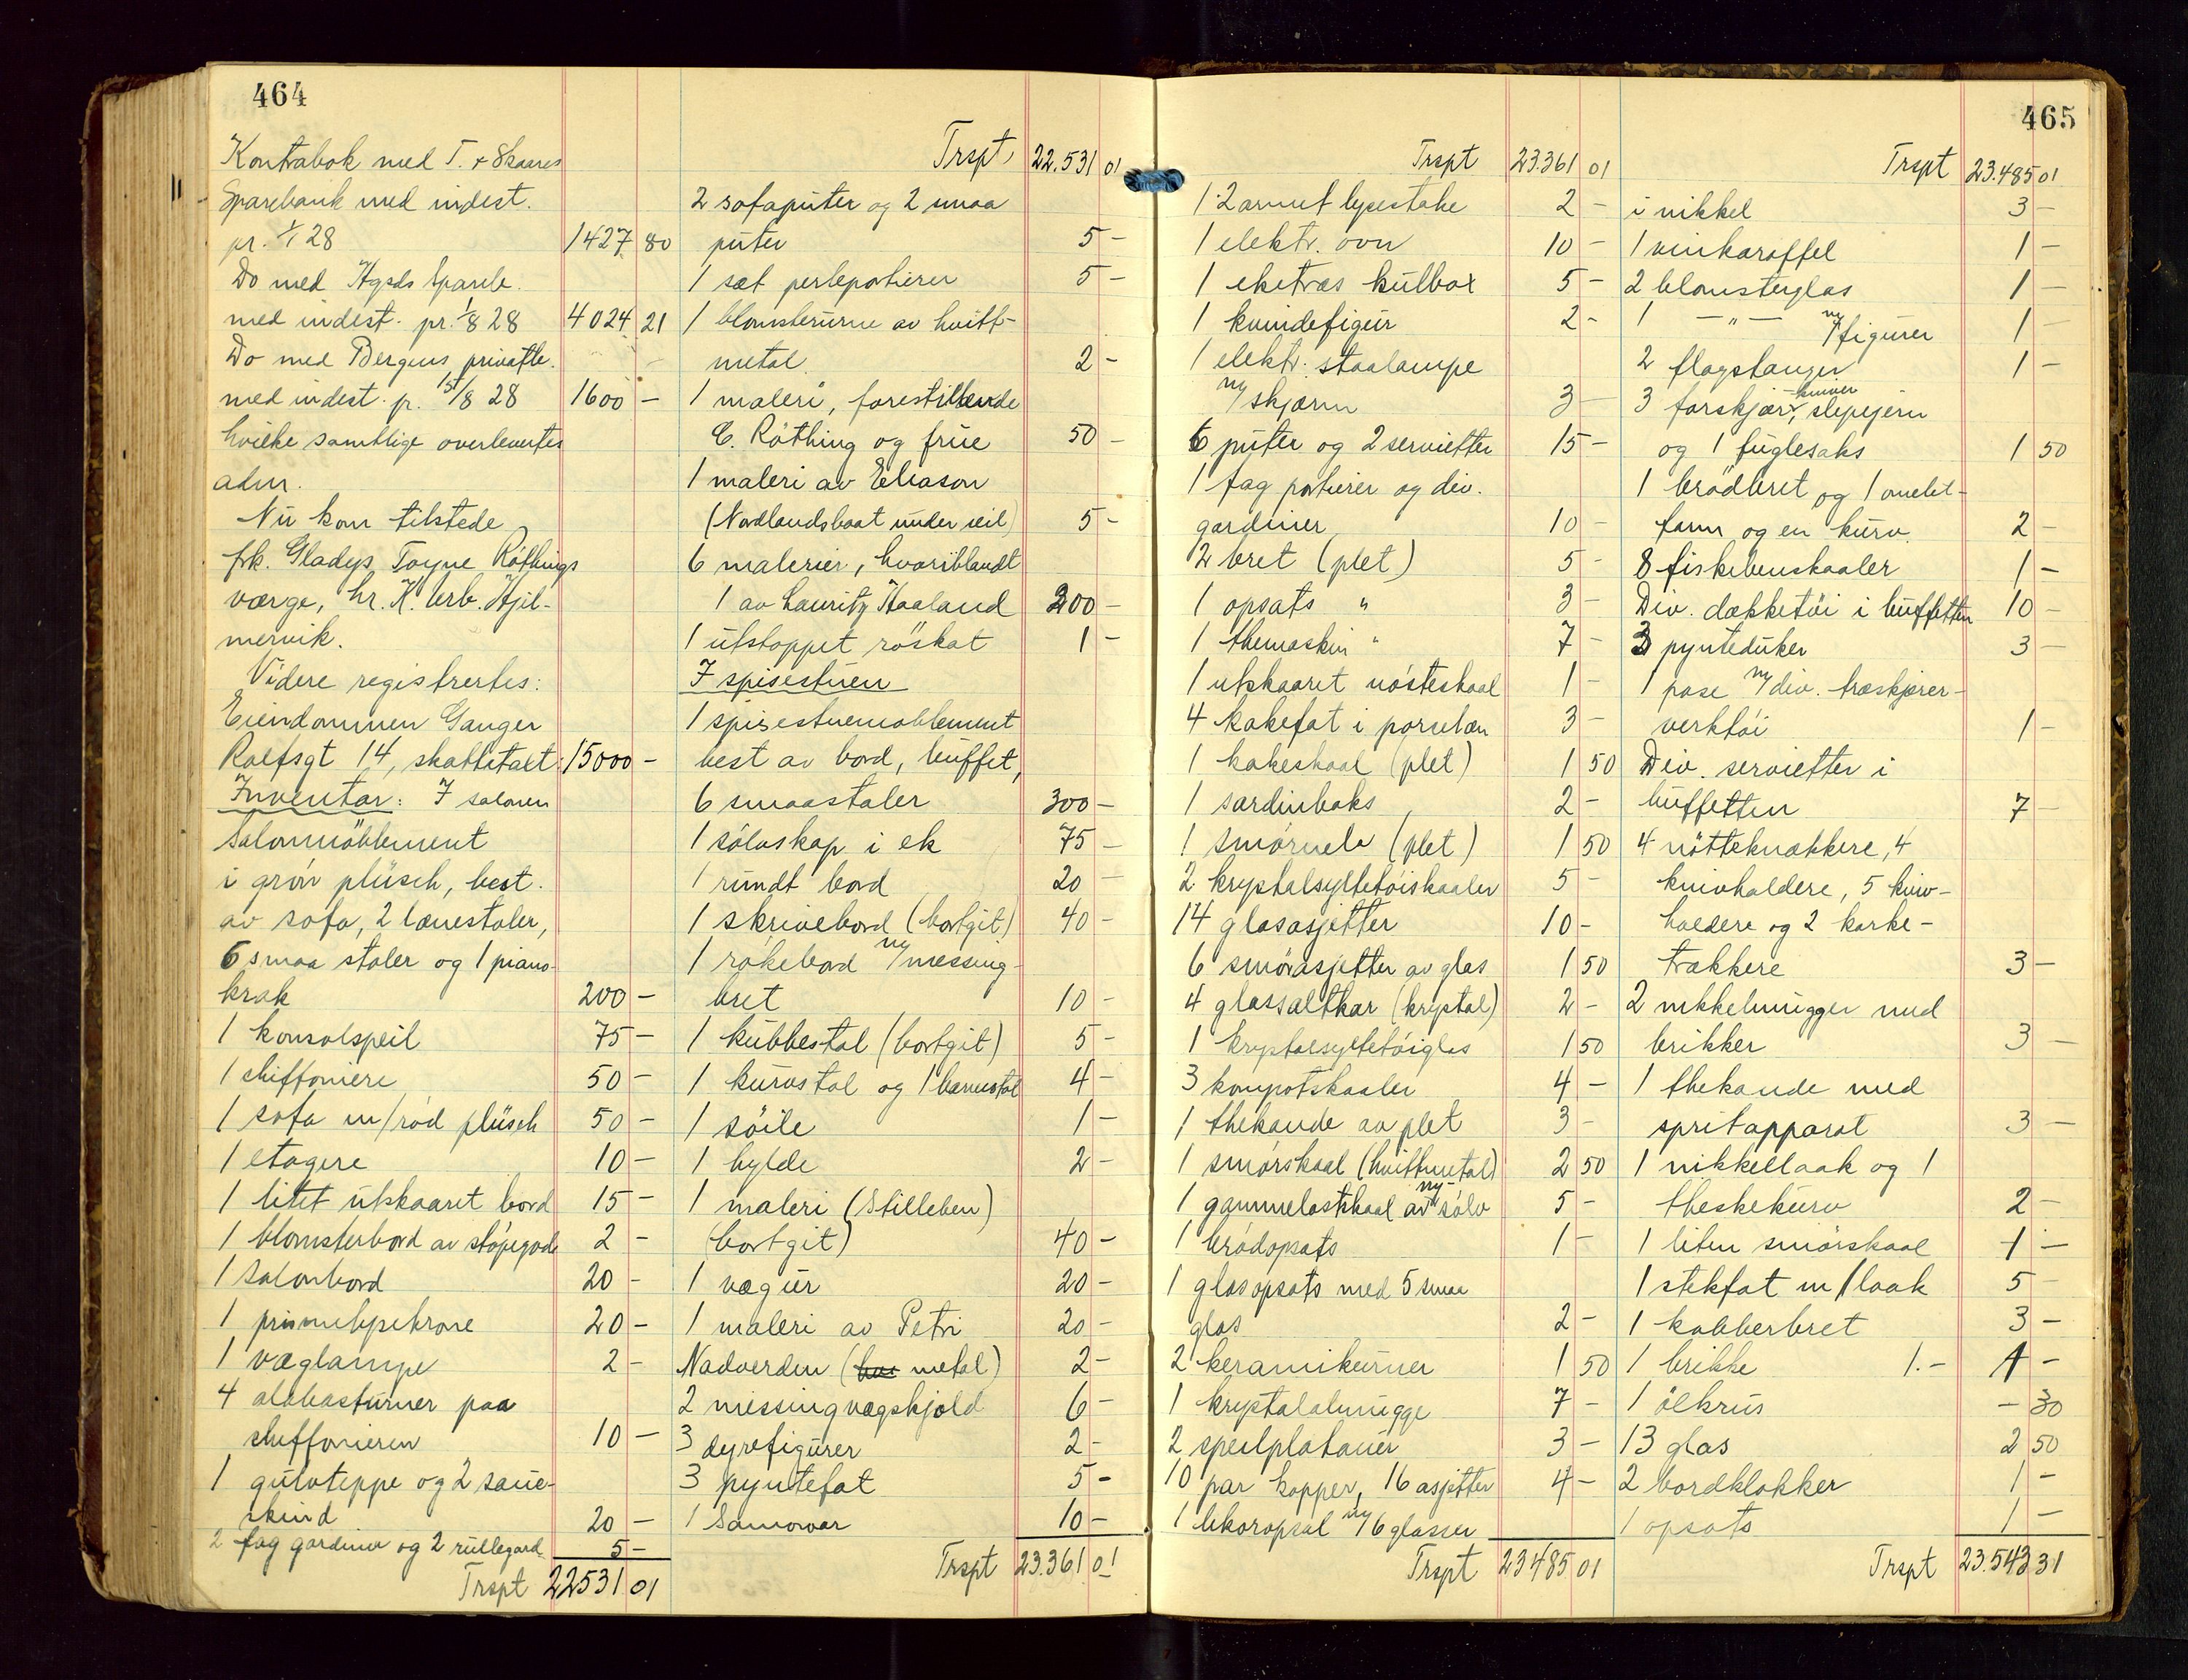 464
Kontrabok med T. & Skaares
Sparebank med indest.
pr. 1/1 28 1427 80
Do med Hgsds Spareb.
med indest. pr. 1/8 28 4024 21
Do med Bergens privatb.
med indest. p. 1/8 28 1600 -
hvilke samtlige overlevertes
adm.
Nu kom tilstede
frk. Gladys Toyne Röthings
værge, hr. K. Erb. Hjil-
mervik.
Videre registrertes:
Eiendommen Ganger
Rolfsgt 14, skattetakt 15000 -
Inventar: I salonen
Salonmöblement
i grön plüsch, best.
av sofa, 2 lænestoler,
6 smaa stoler og 1 piano-
krak 200 -
1 konsolspeil 75 -
1 chiffoniere 50 -
1 sofa m/röd plüsch 50 -
1 etagere 10 -
1 litet utskaaret bord 15 -
1 blomsterbord av støpegods 2 -
1 Salonbord 20 -
1 prismelysekrone 20 -
1 væglampe 2 -
4 alabasturner paa
chiffonieren 10 -
1 gulvteppe og 2 saue-
skind 20 -
2 fag gardiner og 2 rullegard. 5 -
Trspt 22531 01
Trspt 22.531 01
2 sofaputer og 2 smaa
puter 5 -
1 sæt perleportierer 5 -
1 blomsterurne av hvitt-
metal 2 -
1 maleri, forestillende
C. Röthing og frue 50 -
1 maleri av Eliason
(Nordlandsbaat under seil) 5 -
6 malerier, hvoriblandt
1 av Lauritz Haaland 200 -
1 utstoppet röskat 1 -
I spisestuen
1 spisestuemøblement
best av bord, buffet,
6 smaastoler 300 -
1 sölvskap i ek 75 -
1 rundt bord 20 -
1 skrivebord (bortgit) 40 -
1 rökebord m/messing-
bret 10 -
1 kubbestol (bortgit) 5 -
1 kurvstol og 1 barnestol 4 -
1 söile 1 -
1 hylde 2 -
1 maleri (Stilleben)
(bortgit) 40 -
1 vægur 20 -
1 maleri av Petri 20 -
Nadverden ( metal) 2 -
2 messingvægskjold 6 -
3 dyrefigurer 2 -
3 pyntefat 5 -
1 Samovar 10 -
Trspt 23.361 01
465
Trspt 23.361 01
1 2 armet lysestake 2 -
1 elektr. ovn 10 -
1 eketræs kulbox 5 -
1 kvindefigur 2 -
1 elektr. staalampe
m/skjærm 3 -
6 puter og 2 servietter 15 -
1 fag portierer og div.
gardiner 10 -
2 bret (plet) 5 -
1 opsats " 3 -
1 themaskin " 7 -
1 utskaaret nösteskaal 1 -
4 kakefat i porselæn 3 -
1 kakeskaal (plet) 1 50
1 sardinboks 2 -
1 smörnele (plet) 1 50
2 krystalsyltetöiskaaler 5 -
14 glasasjetter 10 -
6 smörasjetter av glas 1 50
4 glassaltkar (krystal) 2 -
1 krystalsyltetöiglas 1 50
3 kompotskaaler 4 -
1 thekande av plet 3 -
1 smörskaal (hvittmetal) 2 50
1 gammelostskaal av ny-sölv 5 -
1 brödopsats 1 -
1 glasopsats med 5 smaa
glas 2 -
2 keramikurner 1 50
1 krystalalmugge 7 -
2 speilplatauer 3 -
10 par kopper, 16 asjetter 4 -
1 likøropsal m/6 glasser
Trspt 23485 01
Trspt 23.485 01
i nikkel 3 -
1 vinkaraffel 1 -
2 blomsterglas 1 -
1 - " - m/figurer 1 -
2 flagstanger 1 -
3 forskjærkniver, slipejern
og 1 fuglesaks 1 50
1 brödbret og 1 omelet-
form og en kurv 2 -
8 fiskebenskaaler 1 -
Div. dækketöi i buffetten 10 -
3 pynteduker 3 -
1 pose m/div. træskjærer-
verktöi 1 -
Div. servietter i
buffetten 7 -
4 nötteknækkere, 4
knivholdere, 5 kniv-
holdere og 2 korke-
trækkere 3 -
2 nikkelmugger med
brikker 3 -
1 thekande med
spritapparat 3 -
1 nikkellaak og 1
theskekurv 2 -
1 liten smörskaal 1 -
1 stekfat m/laak 5
1 kobberbret 3 -
1 brikke 1.- 1 -
1 ölkrus - 30
13 glas 2 50
2 bordklokker 1 -
1 opsats 1 -
Trspt 23.543 31